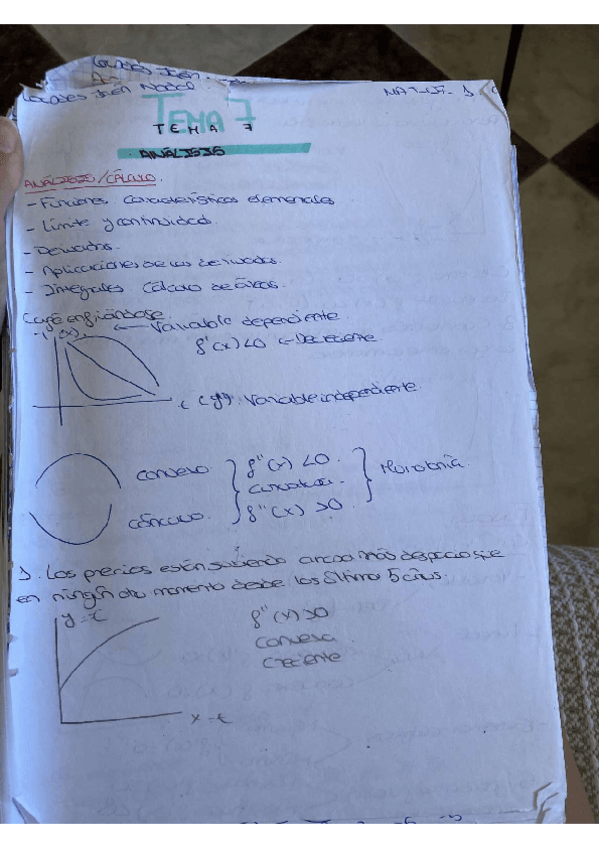 MAT-II-
TEMA 7
TEMA 7
ANÁLISIS
ANÁLISIS/CÁLCULO.
- Funciones. Características elementales
- Límite y continuidad.
- Derivadas.
- Aplicaciones de las derivadas.
- Integrales. Cálculo de áreas.
Café enfriándose.
← Variable dependiente.
f'(x)<0 ← Decreciente
Variable independiente.
convexo f''(x)<0.
curvatura. Monotonía.
cóncavo. f''(x)>0
1. Los precios están subiendo ahora más despacio que
en ningún otro momento desde los último 5 años.
y=
f''(x)>0
convexa
creciente
x=t